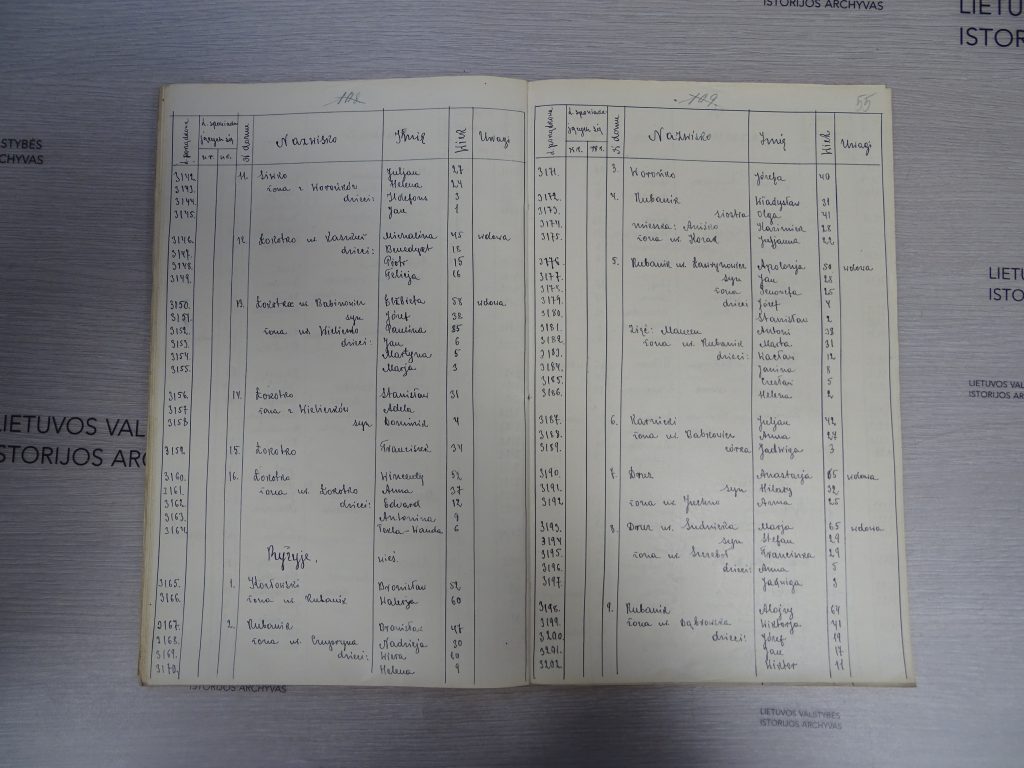 ISTORIJOS ARCHYVAS
LIETU
ISTOR
ALSTYBĖS
ARCHYVAS
LIETUVOS VAL
ISTORIJOS ARCH
108
L. porządkowa
N domu
Nazwisko
Imię
Wiek
Uwagi
3142. 11. Siwko Juljan 27
3143. żona z Worońków Helena 24
3144. dzieci: Ildefons 3
3145. Jan 1
3146. 12. Łokotko Michalina 45 wdowa
3147. dzieci: Benedykt 18
3148. Piotr 15
3149. Felicja 16
3150. 13. Łokotko ur. Babinowier Elżbieta 58 wdowa
3151. syn Józef 32
3152. żona ur. Paulina 35
3153. dzieci: Jan 6
3154. Martyna 5
3155. Marja 3
3156. 14. Łokotko Stanisław 31
3157 żona z Adela
3158 syn Dominik 4
3159. 15. Łokotko Franciszek 34
3160. 16. Łokotko Wincenty 52
3161. żona ur. Łokotko Anna 37
3162. dzieci: Edward 12
3163. Antonina 9
3164. Tekla-Wanda 6
Ryżyje, wieś.
3165. 1. Bronisław 52
3166. żona ur. Rubanik Walerja 60
3167. 2. Rubanik Bronisław 47
3168. żona ur. Czupryna Nadzieja 30
3169. dzieci: Wiera 10
3170. Helena 9
109
55
L. porządkowa
N domu
Nazwisko
Imię
Wiek
Uwagi
3171. 3. Worońko Józefa 40
3172. 4. Rubanik Władysław 31
3173. siostra Olga 41
3174. mieszka: Aniśko Kazimierz 28
3175. żona ur. Horad Juljanna 22
3176. 5. Rubanik ur. Ławrynowicz Apolonja 50 wdowa
3177. syn Jan 28
3178. żona Genowefa 25
3179. dzieci Józef 4
3180. Stanisław 2
3181. Zięć: Antoni 38
3182. żona ur. Rubanik Marta 31
3183. dzieci: Wacław 12
3184. Janina 8
3185. Czesław 5
3186. Helena 2
3187. 6. Karnicki Juljan 42
3188. żona ur. Babkowicz Anna 27
3189. córka Jadwiga 3
3190. 7. Druz Anastazja 65 wdowa
3191. syn Hilary 32
3192 żona ur. Juchno Anna 25
3193. 8. Druz ur. Sudnicka Marja 65 wdowa
3194 syn Stefan 29
3195. żona ur. Szczebot Franciszka 29
3196. dzieci: Anna 5
3197. Jadwiga 3
3198. 9. Rubanik Alojzy 64
3199. żona ur. Dąbrowska Wiktorja 41
3200. dzieci: Józef 19
3201. Jan 17
3202 Wiktor 11
LIETUV
ISTORI
LIETUVOS VALSTY
ISTORIJOS ARCHYV
ISTORIJOS ARCHYVAS
LIETUVOS VALSTYBĖS
ISTORIJOS ARCHYVAS